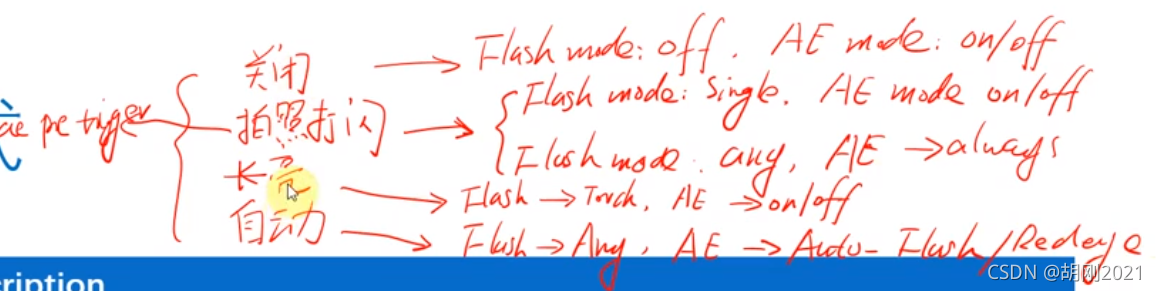 关闭 → Flash mode: off. AE mode: on/off
ae pre trigger
拍照打闪 → Flash mode: Single. AE mode on/off
Flash mode: any, AE → always
长亮 → Flash → Torch, AE → on/off
自动 → Flash → Any, AE → Auto-Flash/Redeye
cription
CSDN @胡刚2021